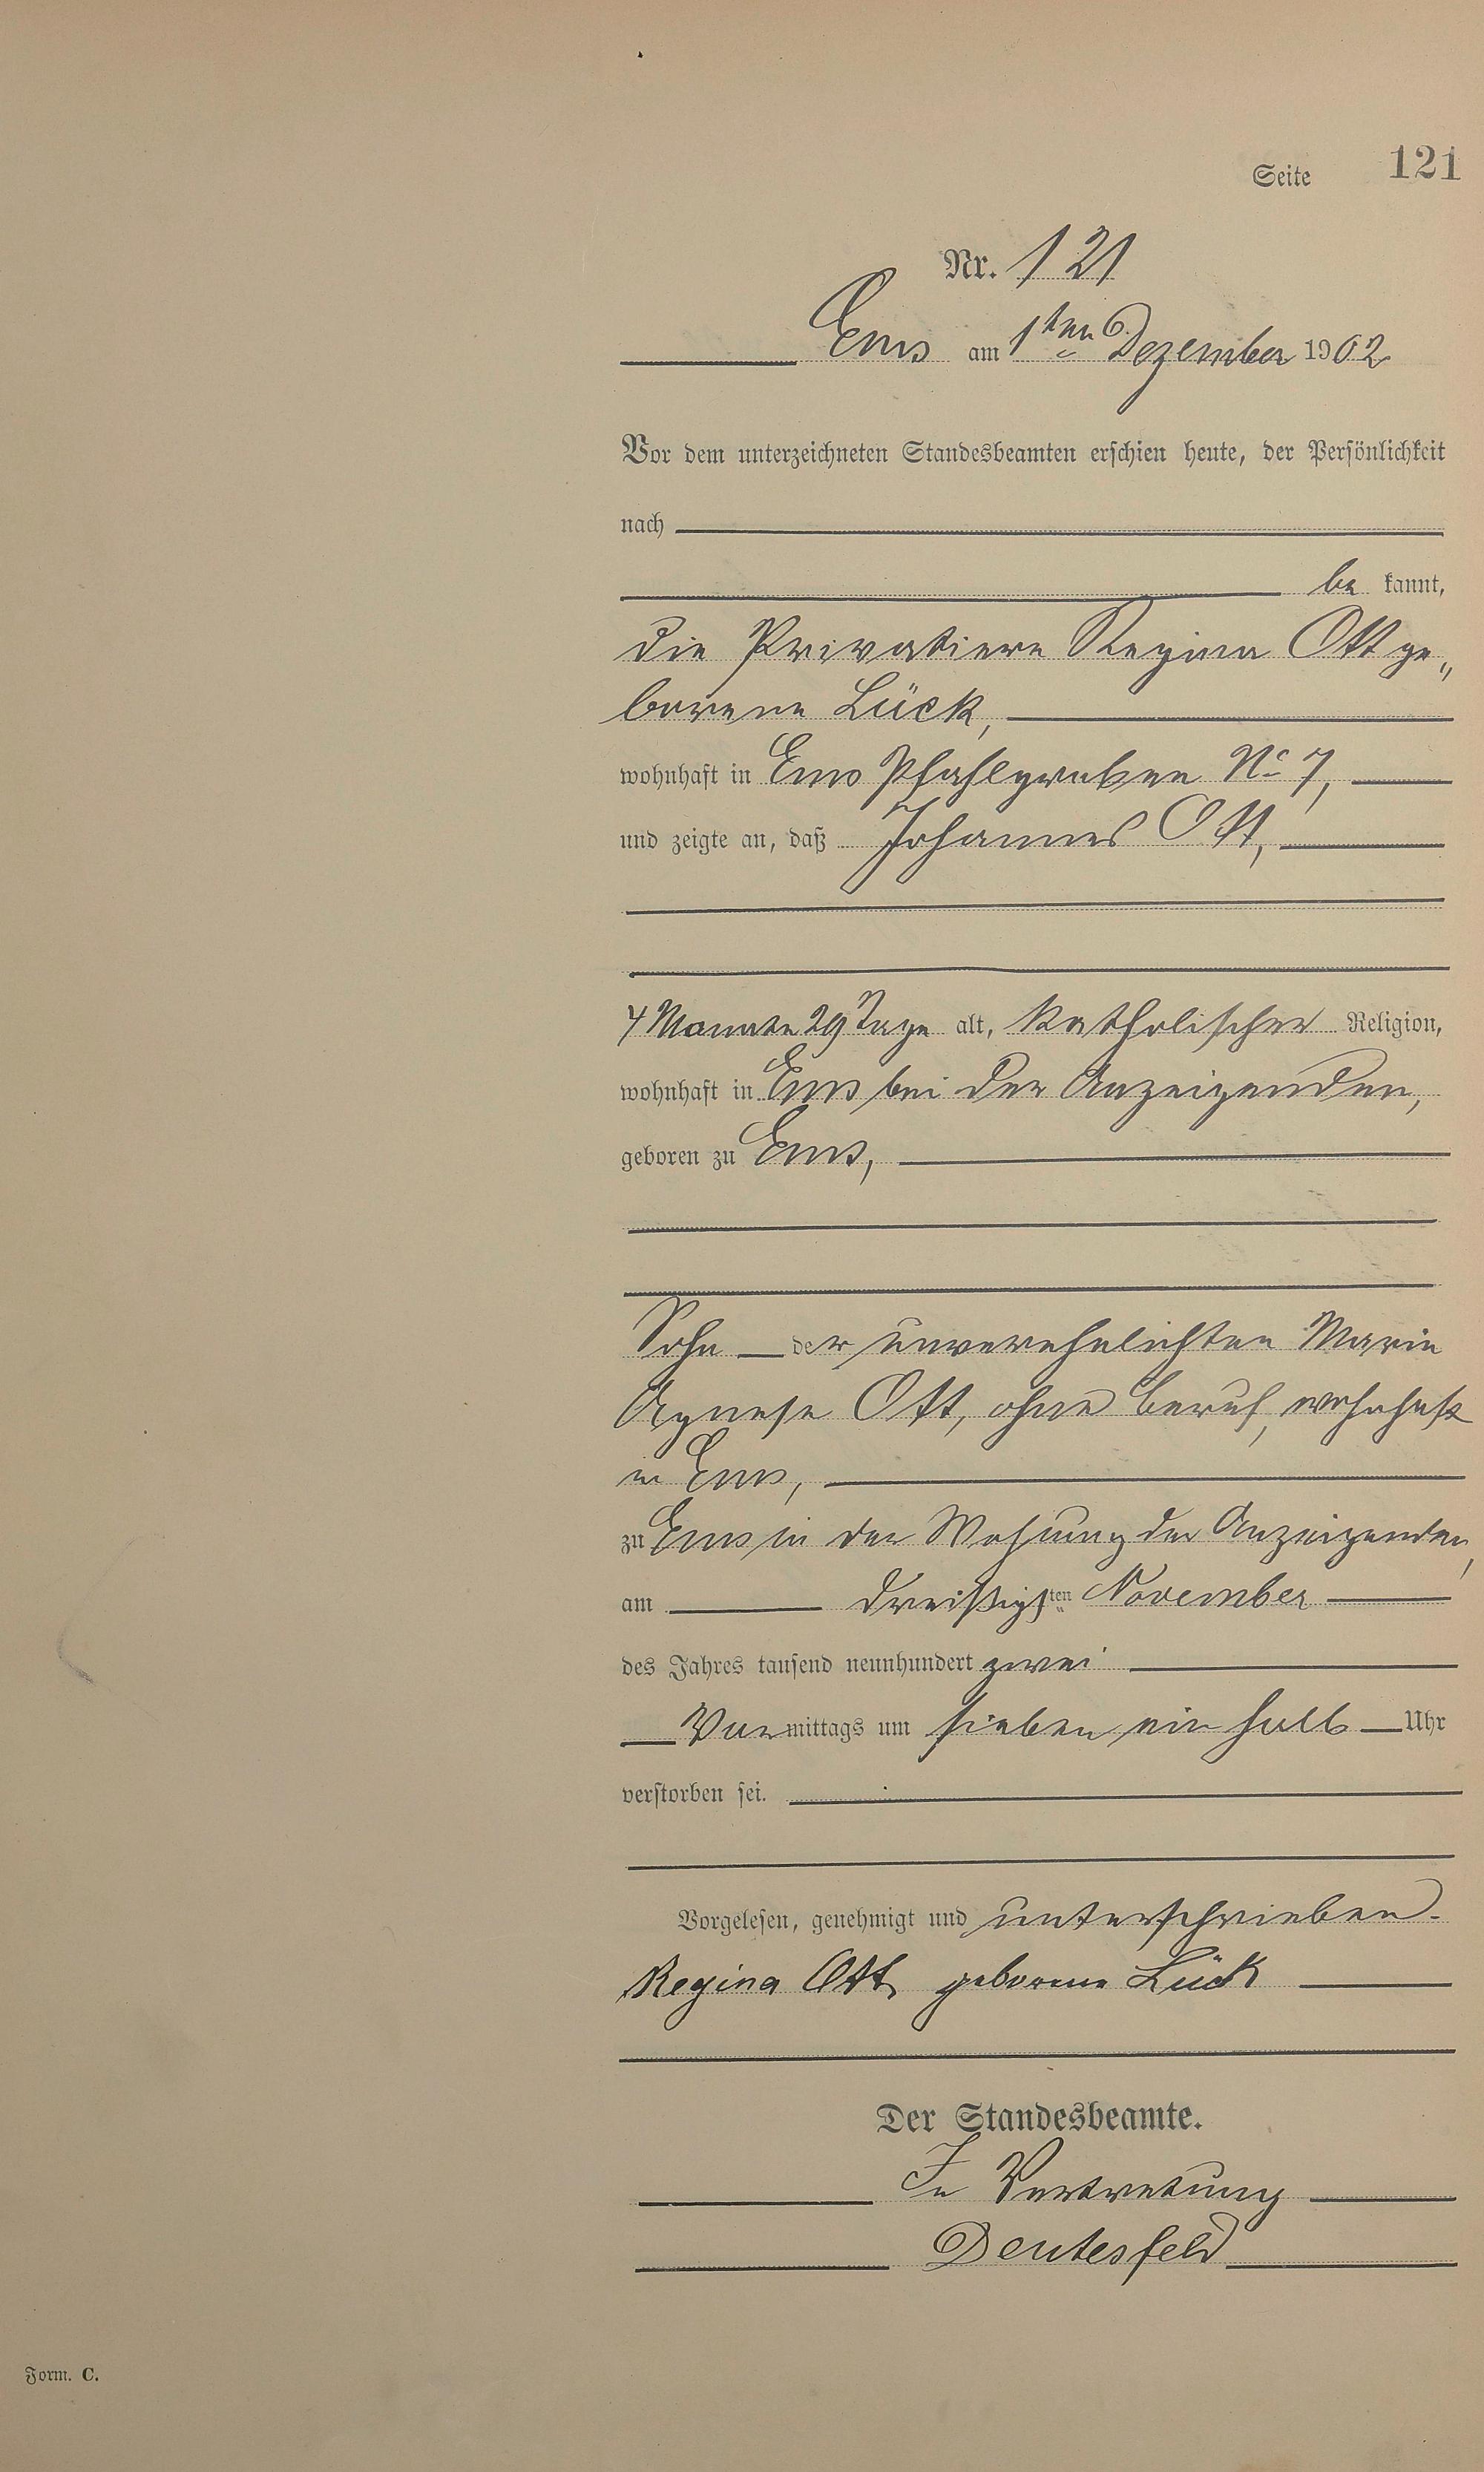 Seite 121
Nr. 121
Ems am 1ten Dezember 1902
Vor dem unterzeichneten Standesbeamten erschien heute, der Persönlichkeit
nach
be kannt,
die Privatiere Regina Ott ge„
borene Lück,
wohnhaft in Ems Pfahlgraben No 7,
und zeigte an, daß Johannes Ott,
4 Monate 29 Tage alt, katholischer Religion,
wohnhaft in Ems bei der Anzeigenden,
geboren zu Ems,
Sohn der unverehelichten Marie
Agnese Ott, ohne Beruf, wohnhaft
in Ems,
zu Ems in der Wohnung der Anzeigenden,
am dreißigsten November
des Jahres tausend neunhundert zwei
Vormittags um sieben ein halb Uhr
verstorben sei.
Vorgelesen, genehmigt und unterschrieben.
Regina Ott geborene Lück
Der Standesbeamte.
In Vertretung
Deutesfeld
Form. C.